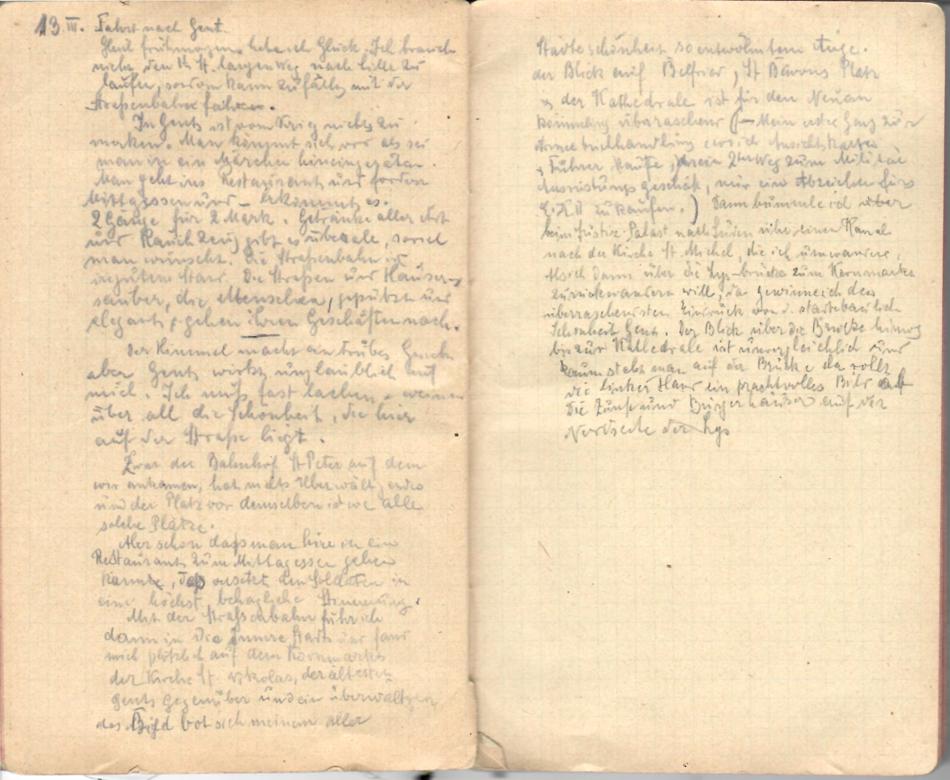 13 III. Fahrt nach Gent.
Gleich frühmorgens habe ich Glück. Ich brauche
nicht den 1½ St. langen Weg nach Lille zu
laufen, sondern kann zufällig mit der
Straßenbahn fahren.
In Gent ist vom Krieg nichts zu
merken. Man kommt sich vor als sei
man in ein Märchen hineingeraten.
Man geht ins Restaurant und fordert
Mittagessen und – bekommt es.
2 Gänge für 2 Mark. Getränke aller Art
und Rauchzeug gibt es überall, soviel
man wünscht. Die Straßenbahn ist
in gutem Stand. Die Straßen und Häuser
sauber, die Menschen, geputzt und
elegant, gehen ihren Geschäften nach.
Der Himmel macht ein trübes Gesicht
aber Gent wirkt unglaublich auf
mich. Ich muß fast lachen u. weinen
über all die Schönheit, die hier
auf der Straße liegt.
Zwar der Bahnhof St Peter auf dem
wir ankamen, hat nichts Überwältigendes
und der Platz vor demselben ist wie alle
solche Plätze.
Aber schon daß man hier in ein
Restaurant zum Mittagessen gehen
konnte, das versetzt den Soldaten in
eine höchst behagliche Stimmung.
Mit der Straßenbahn fuhr ich
dann in die Innere Stadt und fand
mich plötzlich auf dem Kornmarkt
der Kirche St. Nikolas, der ältesten
Gents gegenüber und ein überwältigen
des Bild bot sich meinem aller
Städteschönheit so entwöhntem Auge.
der Blick auf Belfried, St Bavons Platz
u. der Kathedrale ist für den Neuan
kömmling überraschend (– Mein erster Gang zur
Armeebuchhandlung wo ich Ansichtskarten
u. Führer kaufe, mein 2ter Weg zum Militär
Ausrüstungsgeschäft, mir ein Abzeichen fürs
E.K.II zu kaufen.) Dann bummle ich über
beim Justiz-Palast nach Süden über einen Kanal
nach der Kirche St Michel, die ich umwandere.
Als ich dann über die Lys-brücke zum Kornmarkt
zurückwandern will, da gewinne ich den
überraschendsten Eindruck von d. städtebaulichen
Schönheit Gents. Der Blick über die Brücke hinweg
bis zur Kathedrale ist unvergleichlich und
kaum steht man auf der Brücke da rollt
die linke Hand ein prachtvolles Bild auf
Die Zunft und Bürgerhäuser auf der
Nordseite der Lys